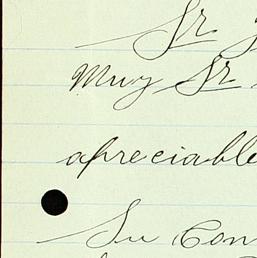 Sr
Muy Sr
apreciable
Su Con